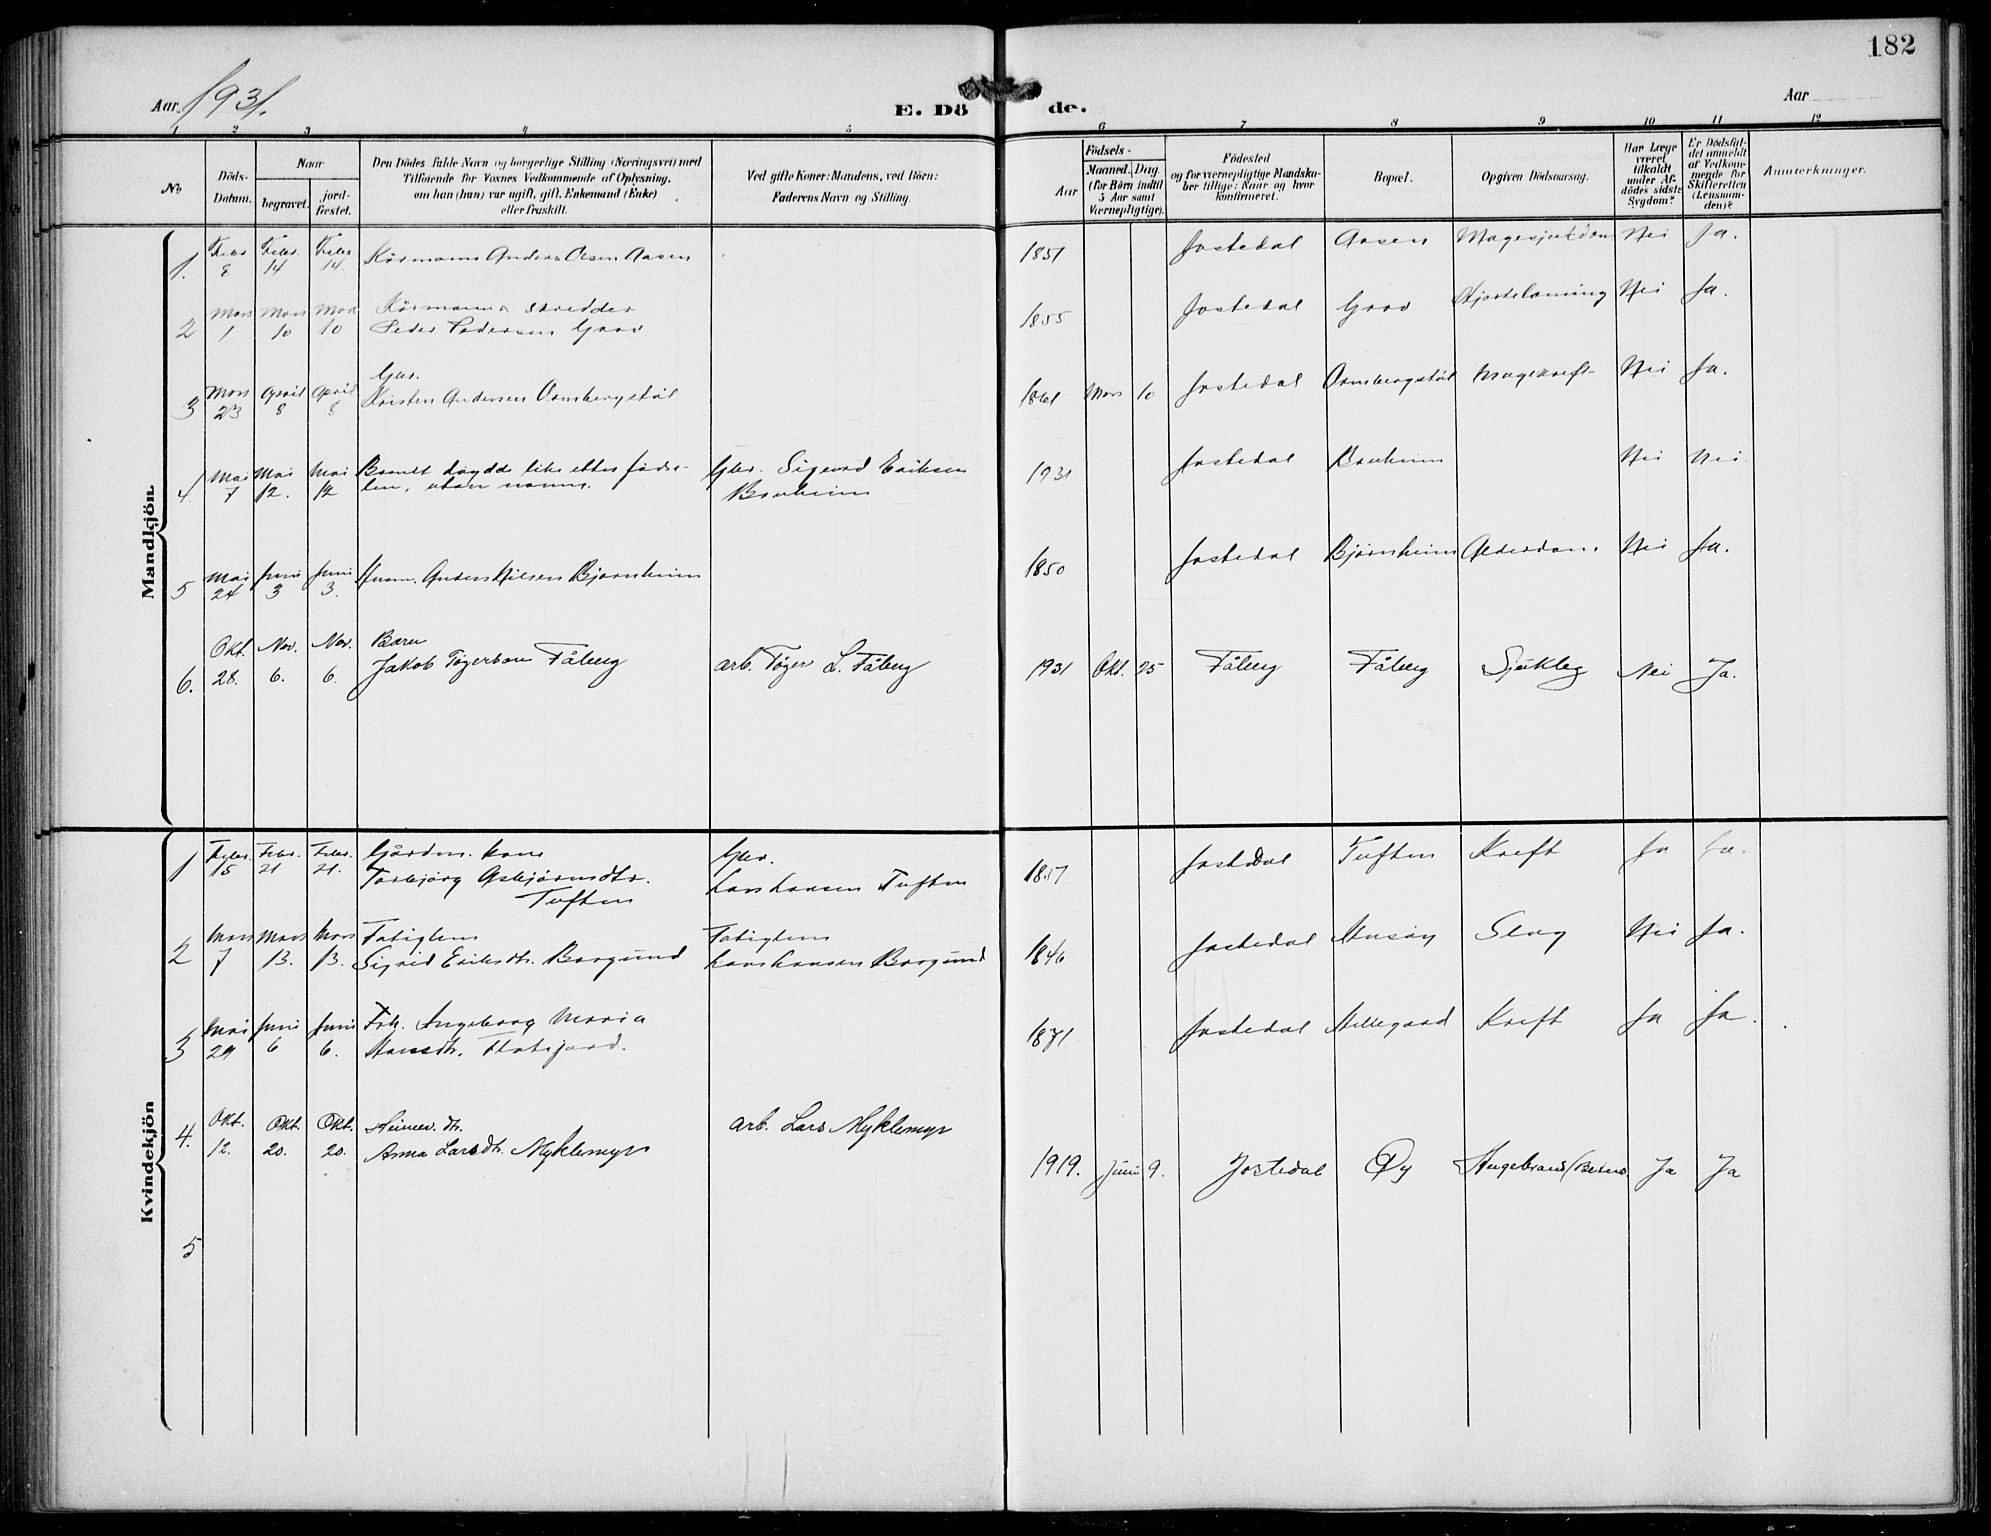 182
Aar 1931.
E. Dö de.
Aar
1 2 3 4 5 6 7 8 9 10 11 12
No
Döds-
Datum.
Naar
begravet.
jord-
fæstet.
Den Dödes fulde Navn og borgerlige Stilling (Næringsvei) med
Tilføiende for Voxnes Vedkommende af Oplysning,
om han (hun) var ugift, gift, Enkemand (Enke)
eller fraskilt.
Ved gifte Koner: Mandens, ved Börn:
Faderens Navn og Stilling.
Födsels-
Aar
Maaned. Dag.
(for Börn indtil
5 Aar samt
Værnepligtige).
Födested
og for værnepligtige Mandska-
ber tillige: Naar og hvor
konfirmeret.
Bopæl.
Opgiven Dödsaarsag.
Har Læge
været
tilkaldt
under Af-
dödes sidste
Sygdom?
Er Dödsfal-
det anmeldt
af Vedkom-
mende for
Skifteretten
(Lensman-
den)?
Anmerkninger.
Mandkjön
1. Febr 8 Febr 14 Febr 14 Kårmann Anders Olsen Aasen 1851 Jostedal Aasen Magesjukdom Nei Ja.
2 Mars 1 Mars 10 Mars 10 Kårmann o skredder
Peder Pedersen Grov 1855 Jostedal Grov Hjartelaming Nei Ja.
3 Mars 23 April 8 April 8 Gbr.
Kristen Andersen Ormbergstøl 1861 Mars 10 Jostedal Ormbergstøl Magekreft Nei Ja.
4 Mai 7 Mai 12. Mai 12 Barnet døydde like etter føds-
len, utan namn. Gbr. Sigurd Eriksen
Bruheim 1931 Jostedal Bruheim Nei Nei
5 Mai 24 Juni 3 Juni 3. Husm. Anders Nilsen Bjørnheim 1850 Jostedal Bjørnheim Alderdom. Nei Ja.
6. Okt. 28. Nov. 6. Nov. 6. Barn
Jakob Tøgerson Fåberg arb. Tøger L. Fåberg 1931 Okt. 25 Fåberg Fåberg Sjukleg Nei Ja.
Kvindekjön
1 Febr. 15 Febr. 21 Febr. 21. Gårdm. kone
Torbjørg Asbjørnsdtr.
Tuften Gbr.
Lars Larsen Tuften 1857 Jostedal Tuften Kreft Ja Ja.
2 Mars 7 Mars 13. Mars 13. Fatiglem
Sigrid Eriksdtr. Borgund Fatiglem
Lars Larsen Borgund 1846 Jostedal Husøy Slag Nei Ja.
3 Mai 29 Juni 6 Juni 6. Frk. Ingeborg Maria
Hansdtr. 1871 Jostedal Kreft Ja Ja.
4. Okt. 12. Okt. 20. Okt. 20. Heimev. dtr.
Anna Larsdtr. Myklemyr arb. Lars Myklemyr 1919. Juni 9. Jostedal Øy Ja Ja
5